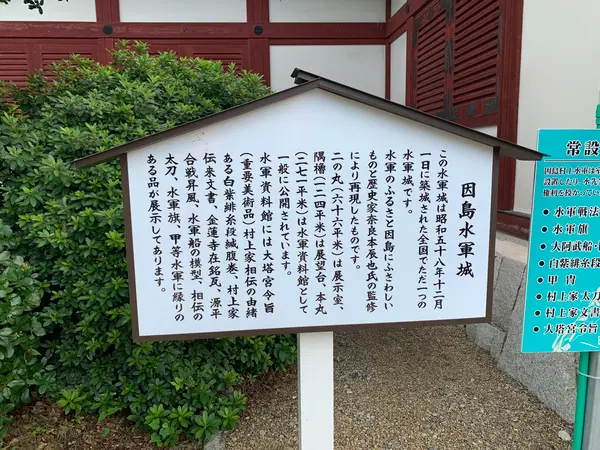 因島水軍城
この水軍城は昭和五十八年十二月
一日に築城された全国でただ一つの
水軍城です。
水軍のふるさと因島にふさわしい
ものと歴史家奈良本辰也氏の監修
により再現したものです。
二の丸（六十六平米）は展示室、
隅櫓（二四平米）は展望台、本丸
（二七二平米）は水軍資料館として
一般に公開されています。
水軍資料館には大塔宮令旨
（重要美術品）村上家相伝の由緒
ある白紫緋糸段縅腹巻、村上家
伝来文書、金蓮寺在銘瓦、源平
合戦昇風、水軍船の模型、相伝の
太刀、水軍旗、甲等水軍に縁りの
ある品が展示してあります。
常設
因島村上水軍は
設置したり、水先
権利を授かってい
・水軍戦法
・水軍旗
・大阿武船・
・白紫緋糸段
・甲冑
・村上家太刀
・村上家文書
・大塔宮令旨